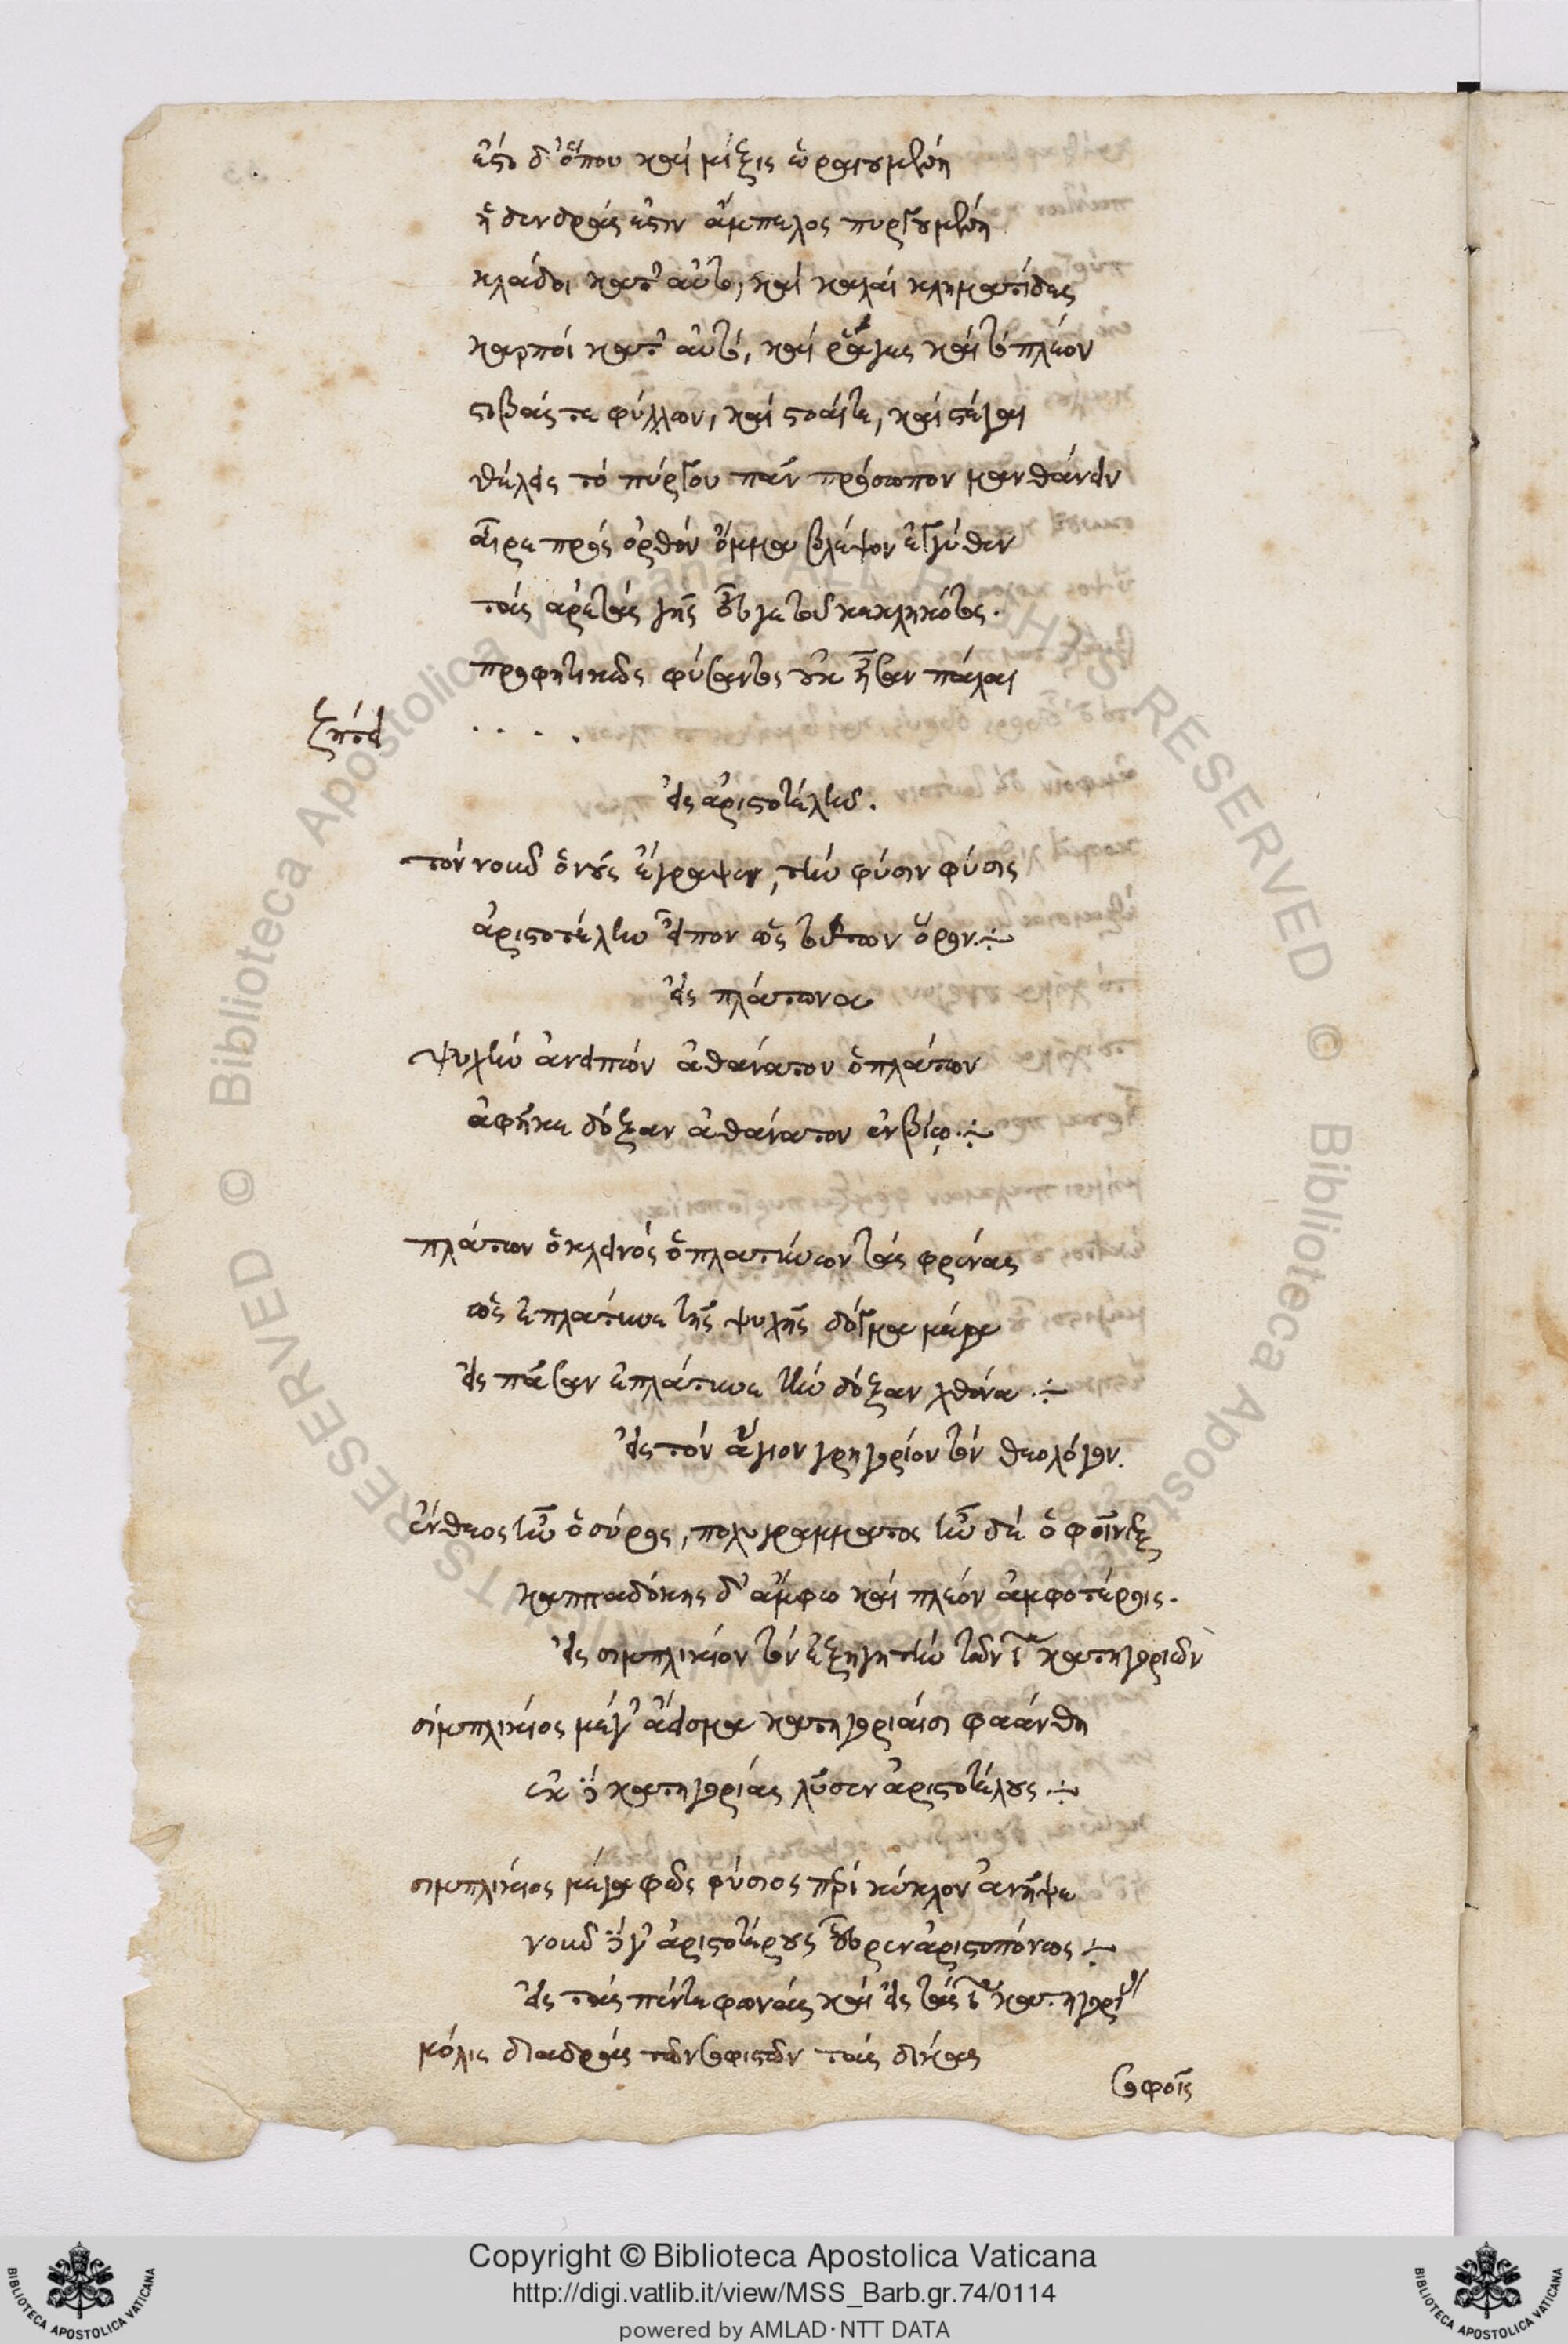 ἔστι δ' ὅπου καὶ μίξις ὡραϊσμένη
ἡ δενδρὰς ἐστὶν ἄμπελος πυργουμένη
κλάδοι κατ' αὐτὸ, καὶ καλαὶ κληματίδες
καρποὶ κατ' αὐτό, καὶ ῥᾶγες καὶ τὸ πλέον
στιβάς τε φύλλων, καὶ στοαί τε, καὶ στέγαι
θέλεις τὸ πύργου πᾶν πρόσωπον μανθάνειν
αἶρε πρὸς ὀρθὸν ὄμμα βλέψον ἐγγύθεν
τὰς ἀρετὰς γῆς
προφητικῶς φύσαντος οὐκ ἦσαν πάλαι
ζήτει . . . .
εἰς ἀριστοτέλην.
τὸν νοῦν ὁ νοῦς ἔγραψεν, τὴν φύσιν φύσις
ἀριστοτέλην εἶπον ὡς τούτων ὅρον
εἰς πλάτωνα
ψυχὴν ἀνειπὼν ἀθάνατον ὁ πλάτων
ἀφῆκε δόξαν ἀθάνατον ἐν βίῳ
πλάτων ὁ κλεινὸς ὁ πλατύνων τὰς φρένας
ὡς ἐπλάτυνε τῆς ψυχῆς δόγμα μέγα
εἰς πᾶσαν ἐπλάτυνε τὴν δόξαν χθόνα
εἰς τὸν ἅγιον γρηγόριον τὸν θεολόγον.
ἔνθεος ἦν ὁ σύρος, πολυγράμματος ἦν δὲ ὁ φοῖνιξ
καππαδόκης δ' ἄμφω καὶ πλέον ἀμφοτέροις.
εἰς σιμπλίκιον τὸν ἐξηγητὴν τῶν ι κατηγοριῶν
σιμπλίκιος μέγ' ἄεισμα κατηγορίαισι φαάνθη
ἐκ κατηγορίας λῦσεν ἀριστοτέλους
σιμπλίκιος μέγα φῶς φύσιος περὶ κύκλον ἀνῆψε
νοῦν ἀριστοτέρους εὗρεν ἀριστοπόνως
εἰς τὰς πέντε φωνὰς καὶ εἰς τὰς ι κατηγορί
μόλις διαδρὰς τῶν σοφιστῶν τὰς δίκας
σοφοῖς
Copyright © Biblioteca Apostolica Vaticana
http://digi.vatlib.it/view/MSS_Barb.gr.74/0114
powered by AMLAD·NTT DATA